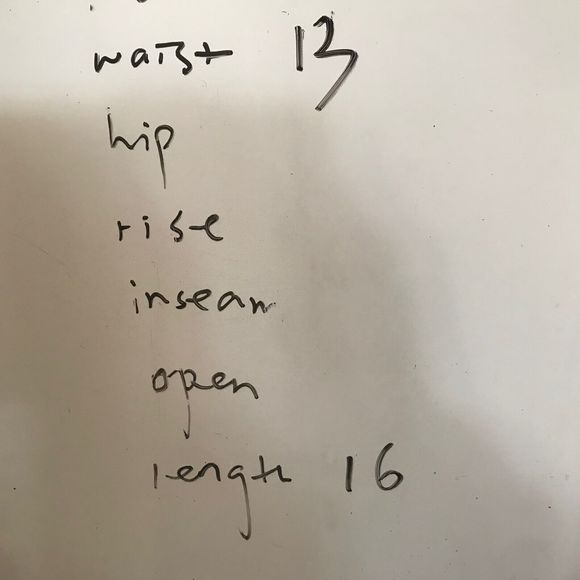 waist 13
hip
rise
inseam
open
length 16